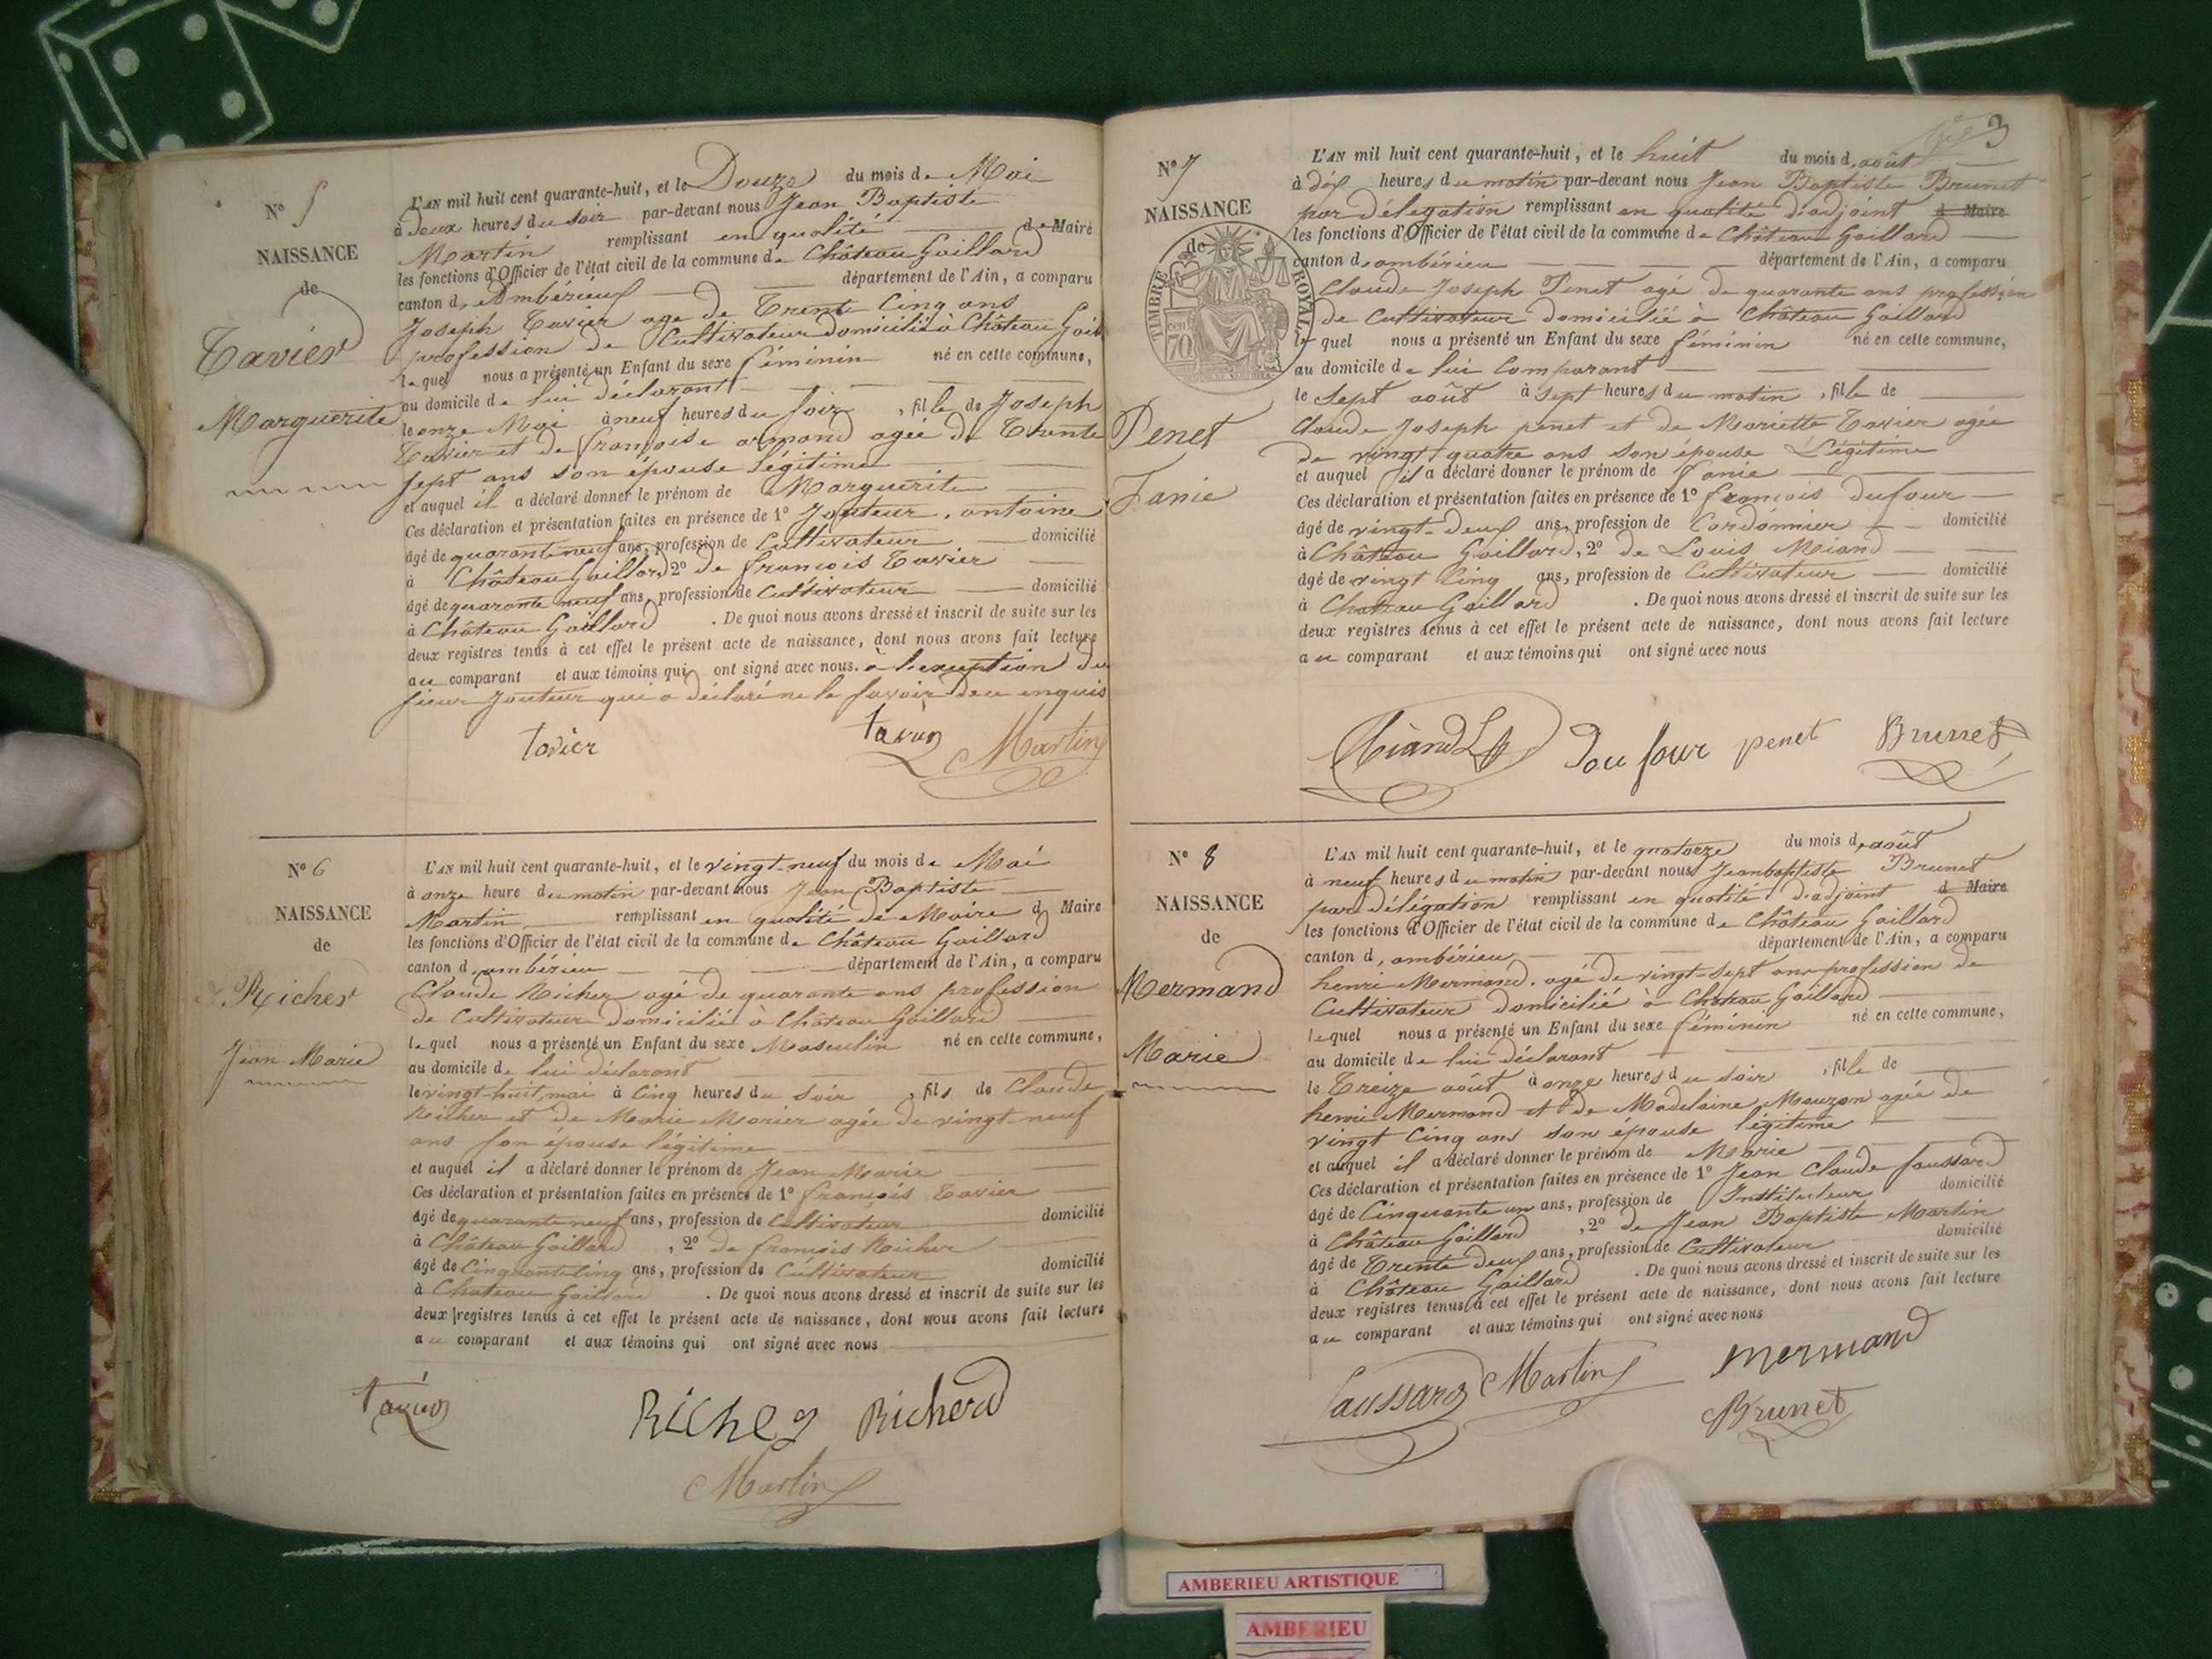 N° 5
NAISSANCE
de
Tavier
Marguerite
L'AN mil huit cent quarante-huit, et le Douze du mois de Mai
à deux heures du soir par-devant nous Jean Baptiste
Martin remplissant en qualité de Maire
les fonctions d'Officier de l'état civil de la commune de Château Gaillard
canton d'Ambérieux département de l'Ain, a comparu
Joseph Tavier age de Trente Cinq ans
profession de Cultivateur domicilié à Château Gail
lequel nous a présenté un Enfant du sexe féminin né en cette commune,
au domicile de lui déclarant
le onze Mai à neuf heures du soir, fille de Joseph
Tavier et de françoise armand agée de Trente
sept ans son épouse légitime
et auquel il a déclaré donner le prénom de Marguerite
Ces déclaration et présentation faites en présence de 1° Jouteur, antoine
âgé de quarante neuf ans, profession de Cultivateur domicilié
à Château Gaillard 2° de françois Tavier
âgé de quarante neuf ans, profession de Cultivateur domicilié
à Château Gaillard. De quoi nous avons dressé et inscrit de suite sur les
deux registres tenus à cet effet le présent acte de naissance, dont nous avons fait lecture
au comparant et aux témoins qui ont signé avec nous. à l'exception du
sieur Jouteur qui a déclaré ne le savoir de ce enquis
tavier tavier Martin
N° 6
NAISSANCE
de
Richer
Jean Marie
L'AN mil huit cent quarante-huit, et le vingt-neuf du mois de Mai
à onze heure du matin par-devant nous Jean Baptiste
Martin remplissant en qualité de Maire d Maire
les fonctions d'Officier de l'état civil de la commune de Château Gaillard
canton d'ambérieu département de l'Ain, a comparu
Claude Richer agé de quarante ans profession
de Cultivateur domicilié à Château Gaillard
lequel nous a présenté un Enfant du sexe Masculin né en cette commune,
au domicile de lui déclarant
le vingt-huit mai à Cinq heures du soir, fils de Claude
Richer et de Marie Morier agée de vingt-neuf
ans son épouse légitime
et auquel il a déclaré donner le prénom de Jean Marie
Ces déclaration et présentation faites en présence de 1° françois Tavier
âgé de quarante neuf ans, profession de Cultivateur domicilié
à Château Gaillard, 2° de françois Richer
âgé de Cinquante Cinq ans, profession de Cultivateur domicilié
à Chateau Gaillard. De quoi nous avons dressé et inscrit de suite sur les
deux registres tenus à cet effet le présent acte de naissance, dont nous avons fait lecture
au comparant et aux témoins qui ont signé avec nous
tavier Richer Richerd
Martin
3
N° 7
NAISSANCE
de
TIMBRE ROYAL
70 cen
Penet
Fanie
L'AN mil huit cent quarante-huit, et le huit du mois d'août
à dix heures du matin par-devant nous Jean Baptiste Brunet
par délegation remplissant en qualité d'adjoint d Maire
les fonctions d'Officier de l'état civil de la commune de Château Gaillard
canton d'ambérieu département de l'Ain, a comparu
Claude Joseph Penet agé de quarante ans profession
de Cultivateur domicilié à Château Gaillard
lequel nous a présenté un Enfant du sexe féminin né en cette commune,
au domicile de lui Comparant
le Sept août à sept heures du matin, fille de
Claude Joseph penet et de Mariette Tavier agée
de vingt quatre ans son épouse Légitime
et auquel il a déclaré donner le prénom de fanie
Ces déclaration et présentation faites en présence de 1° françois dufour
âgé de vingt-deux ans, profession de Cordonnier domicilié
à Château Gaillard, 2° de Louis Miand
âgé de vingt Cinq ans, profession de Cultivateur domicilié
à Chateau Gaillard. De quoi nous avons dressé et inscrit de suite sur les
deux registres tenus à cet effet le présent acte de naissance, dont nous avons fait lecture
au comparant et aux témoins qui ont signé avec nous
Miand Dou four penet Brunet
N° 8
NAISSANCE
de
Mermand
Marie
L'AN mil huit cent quarante-huit, et le quatorze du mois d'août
à neuf heures du matin par-devant nous Jean baptiste Brunet
par délégation remplissant en qualité d'adjoint d Maire
les fonctions d'Officier de l'état civil de la commune de Château Gaillard
canton d'ambérieu département de l'Ain, a comparu
henri Mermand. agé de vingt-sept ans profession de
Cultivateur domicilié à Château Gaillard
lequel nous a présenté un Enfant du sexe féminin né en cette commune,
au domicile de lui déclarant
le Treize août à onze heures du soir, fille de
henri Mermand et de Madelaine Mauzon agée de
vingt Cinq ans son épouse légitime
et auquel il a déclaré donner le prénom de Marie
Ces déclaration et présentation faites en présence de 1° Jean Claude faussard
âgé de Cinquante un ans, profession de Instituteur domicilié
à Château Gaillard, 2° de Jean Baptiste Martin
âgé de Trente Deux ans, profession de Cultivateur domicilié
à Château Gaillard. De quoi nous avons dressé et inscrit de suite sur les
deux registres tenus à cet effet le présent acte de naissance, dont nous avons fait lecture
au comparant et aux témoins qui ont signé avec nous
faussard Martin mermand
Brunet
AMBERIEU ARTISTIQUE
AMBERIEU